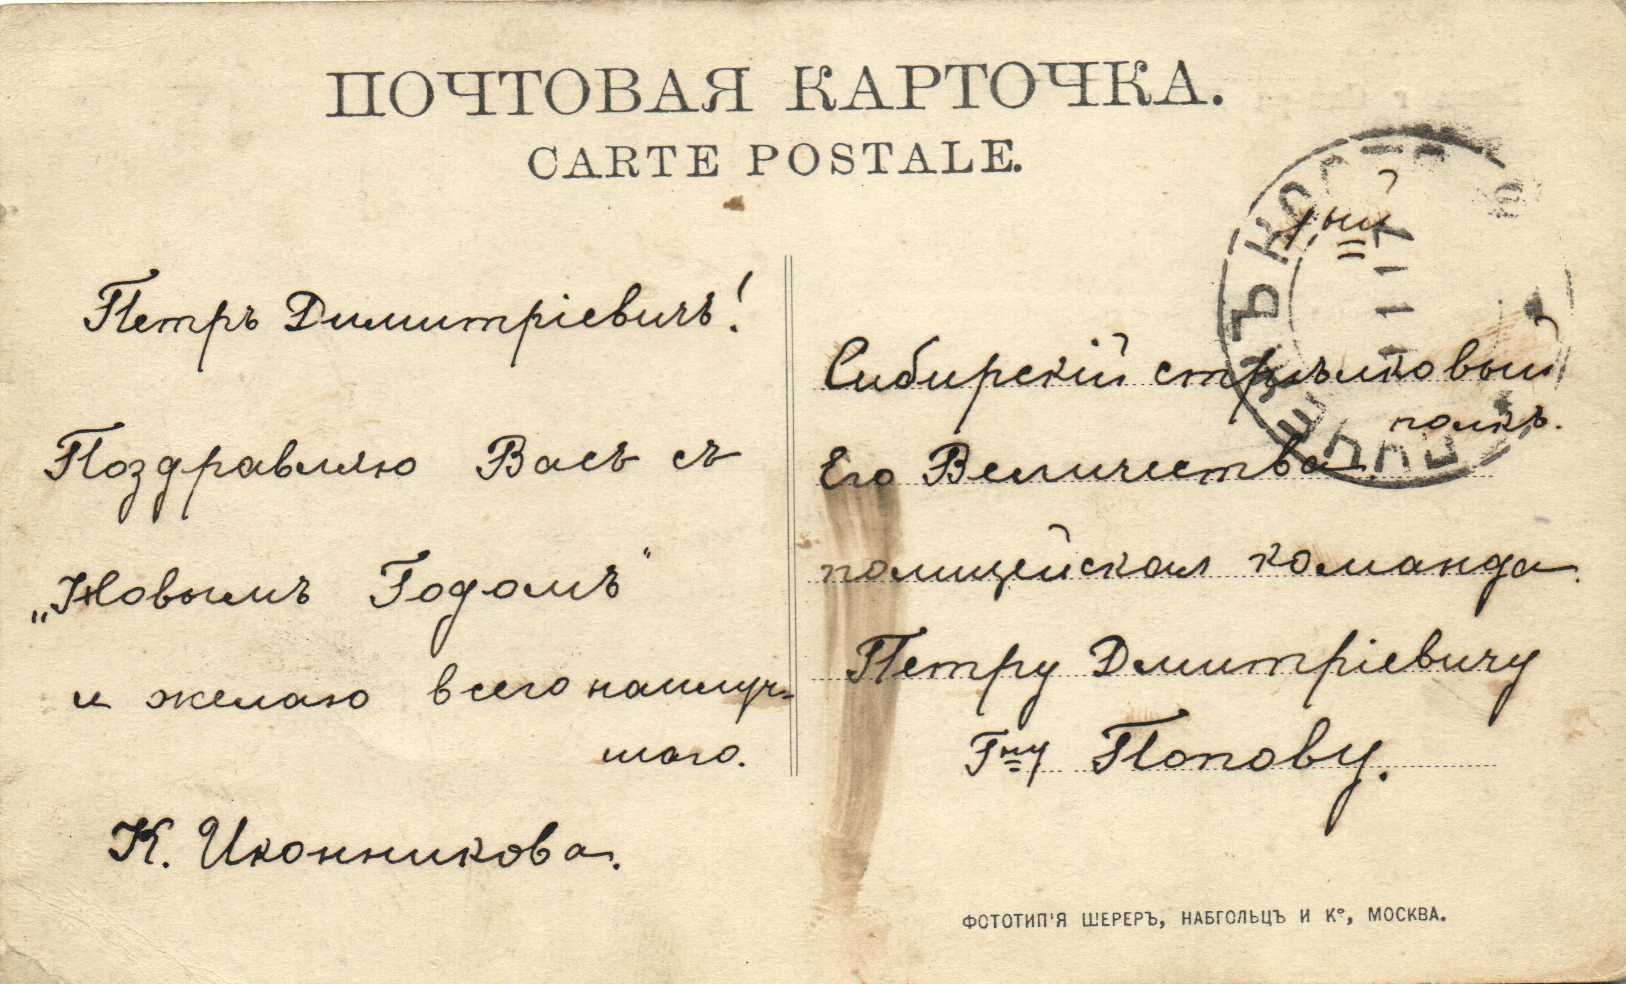 ПОЧТОВАЯ КАРТОЧКА.
CARTE POSTALE.
Петръ Димитріевичъ!
Поздравляю Васъ съ
„Новымъ Годомъ“
и желаю всего наилуч-
шаго.
К. Иконникова.
1ый
Сибирскій стрѣлковый
полкъ.
Его Величества
полицейская команда.
Петру Дмитріевичу
Гну Попову.
ФОТОТИПІЯ ШЕРЕРЪ, НАБГОЛЬЦЪ И Кº, МОСКВА.